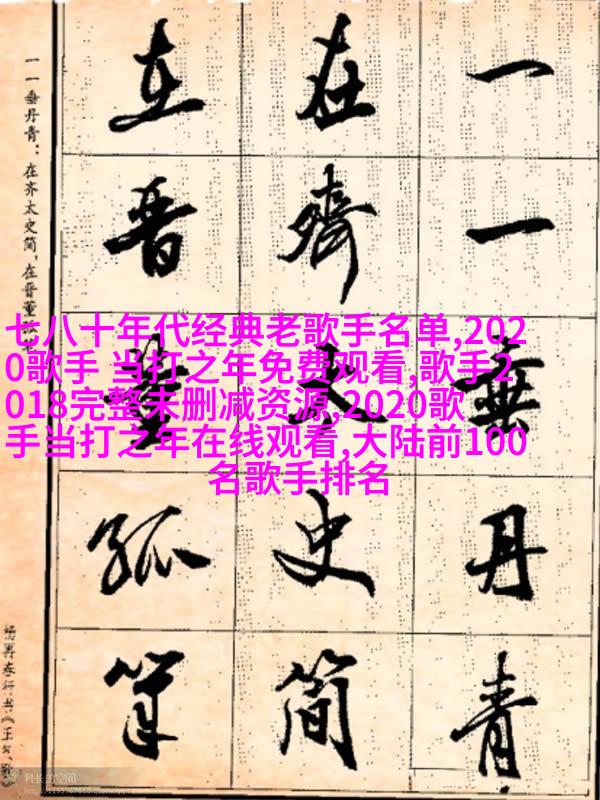 一一垂丹青
在齊太史簡
在晋董狐筆
一一垂丹青：在齐太史简，在晋董
杨再春行书《正气歌》
七八十年代经典老歌手名单,202
0歌手 当打之年免费观看,歌手2
018完整未删减资源,2020歌
手当打之年在线观看,大陆前100
名歌手排名
科长的空间